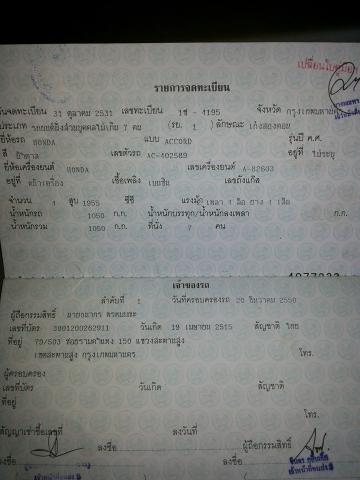 เปลี่ยนใบคู่มือ
รายการจดทะเบียน
วันจดทะเบียน 31 ตุลาคม 2531 เลขทะเบียน 1ช - 4195 จังหวัด กรุงเทพมหานคร
ประเภท รถยนต์นั่งส่วนบุคคลไม่เกิน 7 คน (รย. 1 ) ลักษณะ เก๋งสองตอน
ยี่ห้อรถ HONDA แบบ ACCORD รุ่นปี ค.ศ.
สี เลขตัวรถ AC-402589 อยู่ที่ ไม่ระบุ
ยี่ห้อเครื่องยนต์ HONDA เลขเครื่องยนต์ A-82603
อยู่ที่ เชื้อเพลิง เบนซิน เลขถังแก๊ส
จำนวน 4 สูบ 1955 ซีซี แรงม้า เพลา 4 ล้อ ยาง 4 เส้น
น้ำหนักรถ 1050 ก.ก. น้ำหนักบรรทุก/น้ำหนักลงเพลา ก.ก.
น้ำหนักรวม 1050 ก.ก. ที่นั่ง 7 คน
เจ้าของรถ
ลำดับที่ 1 วันที่ครอบครองรถ 20 ธันวาคม 2550
ผู้ถือกรรมสิทธิ์
เลขที่บัตร 3801200262911 วันเกิด 19 เมษายน 2515 สัญชาติ ไทย
ที่อยู่ 79/503 ซอยรามคำแหง 150 แขวงสะพานสูง
เขตสะพานสูง กรุงเทพมหานคร โทร.
ผู้ครอบครอง
เลขที่บัตร วันเกิด สัญชาติ
ที่อยู่
โทร.
สัญญาเช่าซื้อเลขที่ ลงวันที่ ผู้ถือกรรมสิทธิ์
ลงชื่อ ลงชื่อ